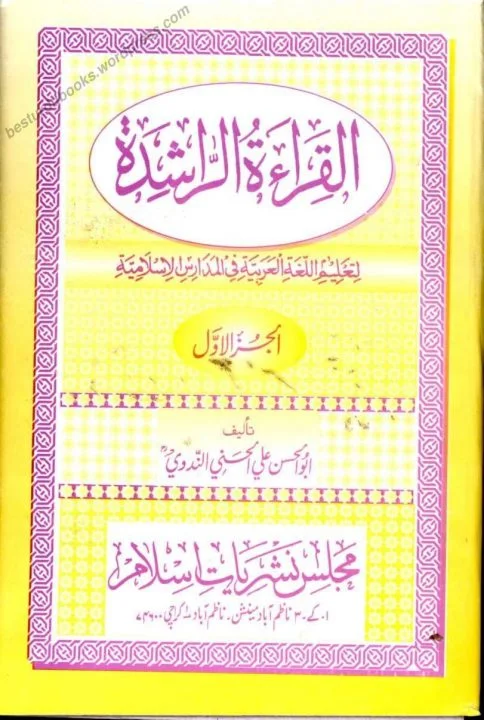 besturdubooks.wordpress.com
القِرَاءَةُ الرَّاشِدَة
لِتَعْلِيْمِ اللُّغَةِ الْعَرَبِيَّةِ فِي الْمَدَارِسِ الْإِسْلَامِيَّةِ
الجُزْءُ الاَوَّل
تأليف
ابو الحسن علي الحسني الندوي
مجلس نشریات اسلام
۱۔ کے۔ ۳ ناظم آباد مینشن۔ ناظم آباد ۱ کراچی ۷۴۶۰۰